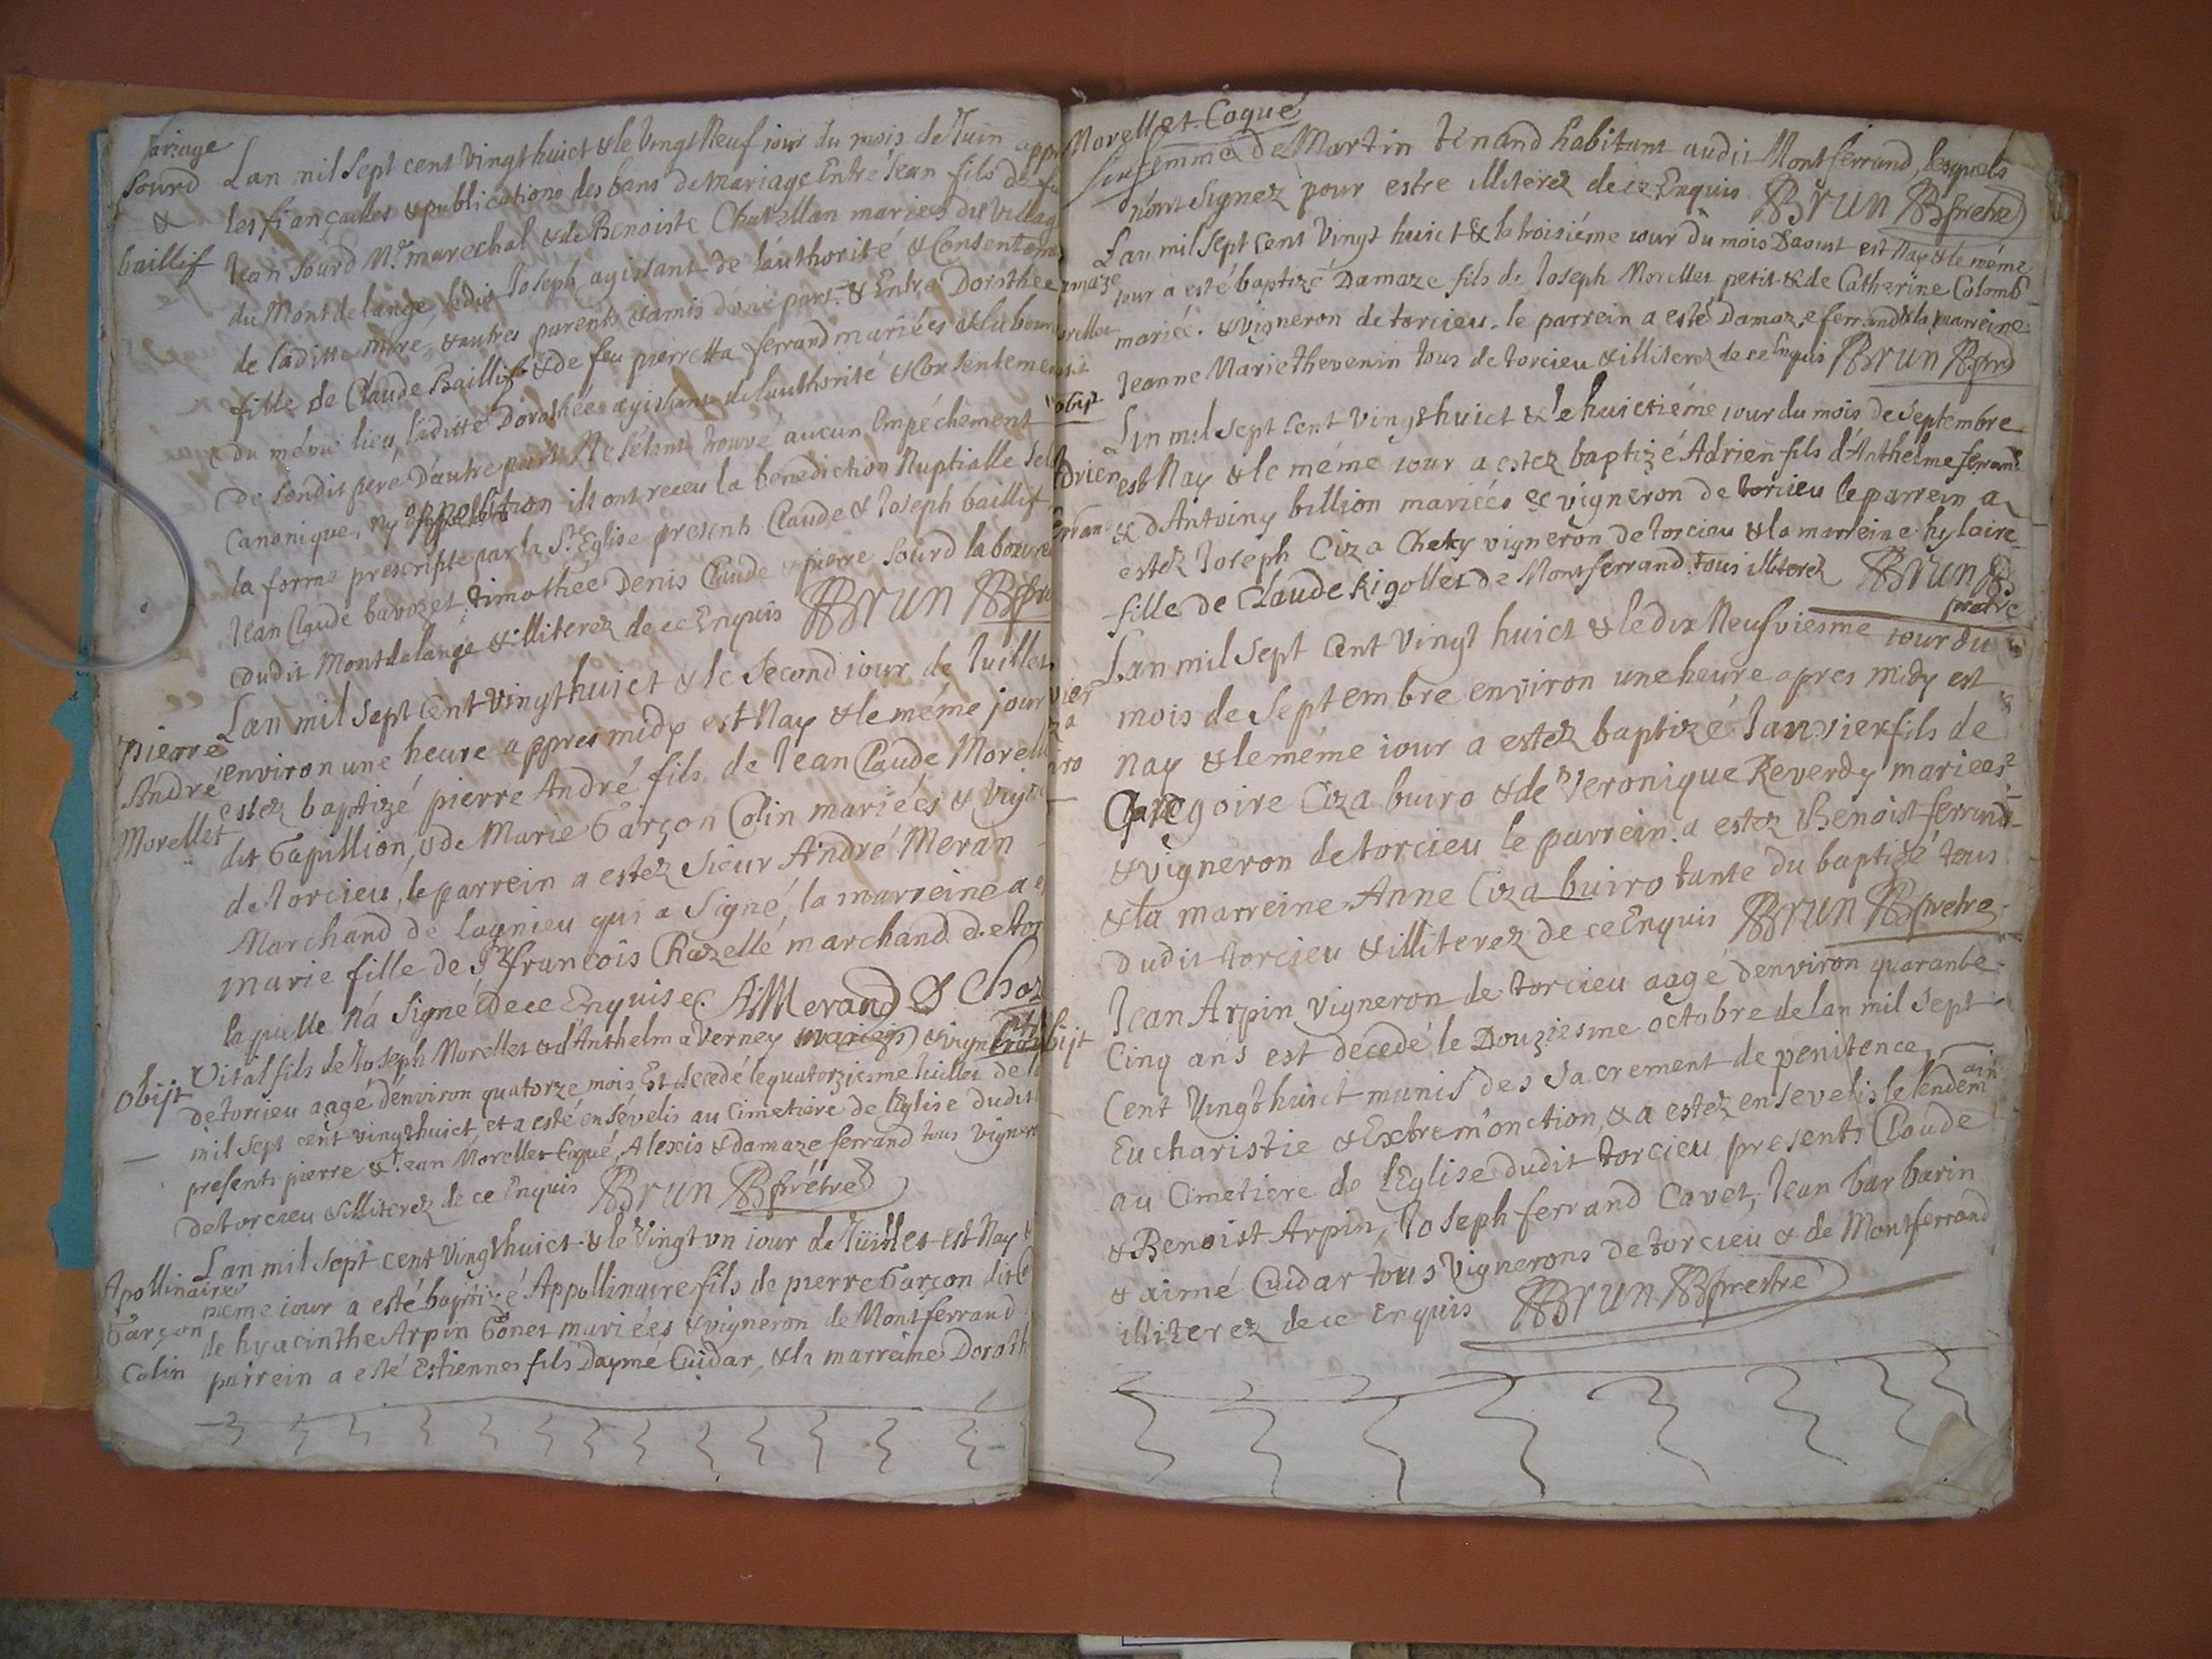 Mariage
Sourd
&
baillif
Lan mil sept cent vingt huict & le vingt Neuf iour du mois de Juin appres
les fiançailles & publications des bans de mariage Entre Jean fils de feu
Jean Sourd Me. marechal & de Benoiste Chatellan mariés du Village
du Montdelange ledit Joseph agissant de l'authorité & Consentement
de laditte Mere, & autres parents & amis d'une part & Entre Dorothée
fille de Claude Baillif & de feu pierretta ferrand mariées & laboureur
du méme lieu, laditte Dorothée agissant de lauthorité & Consentement
de sondit pere Dautre part Ne sétant trouvé aucun Empéchement
Canonique, ny oppolition ils ont receu la benediction Nuptialle selon
la forme prescripte par la Ste. Eglise presents Claude & Joseph baillif
Jean Claude bavozet, timothée Denis Claude & pierre Sourd laboureurs
dudit Montdelange & illiterez de ce Enquis BBrun BBpre
pierre
André
Morellet
Lan mil sept Cent vingt huict & le Second iour de Juillet
environ une heure appres midy est Nay & le méme jour
estez baptizé pierre André fils de Jean Claude Morellet
dit Gapillion, & de Marie Garçon Colin mariées & vigneron
de torcieu, le parrein a estez Sieur André Meran
Marchand de lagnieu qui a Signé, la marreine a
marie fille de Sr. francois Chazelle marchand de tor
laquelle n'a Signé de ce Enquise. A.Merand D Choz
obijt
Vital fils de Joseph Morellet & d'Anthelma Verney mariés & vigneron
de torcieu aagé d'environ quatorze mois Est decedé le quatorziesme Juillet de
mil sept cent vingthuict et a esté ensévelis au Cimetiere de lEglise dudit
presents pierre & Jean Morellet Coqué, Alexis & damaze ferrand tous vignerons
de torcieu & illiterez de ce Enquis BBrun BBprétre
Apollinaire
Garçon
Colin
Lan mil sept cent vingthuict & le vingt un iour de Juillet est Nay &
méme iour a esté baptizé Appollinaire fils de pierre Garçon dit
de hyacinthe Arpin Gonet mariées & vigneron de Montferrand
parrein a esté Estiennes fils Daymé Cuidar, & la marreine Doroth
Morellet Coqué
femme de Martin tenand habitant audit Montferrand, lesquels
n'ont Signez pour estre illiterez de ce Enquis BBrun BBpretre
Lan mil sept cent vingt huict & le troisiéme iour du mois Daoust est Nay & le méme
iour a esté baptizé Damaze fils de Joseph Morellet petit & de Catherine Colomb
mariée. & vigneron de torcieu. le parrein a esté Damaze ferrand & la marreine
Jeanne Marie thevenin tous de torcieu & illiterez de ce Enquis BBrun BBpre
obijt
Lan mil sept Cent vingthuict & le huictiéme iour du mois de Septembre
est Nay & le méme iour a estez baptizé Adrien fils d'Anthelme ferrand
& d'Antoiny billion mariées & vigneron de torcieu le parrein a
estez Joseph Ciza Cheky vigneron de torcieu & la marreine hylaire
fille de Claude Rigollet de Montferrand tous illiterez BBrun BB
pretre
Lan mil sept Cent vingt huict & le dix Neufviesme iour du
mois de Septembre environ une heure apres midy est
nay & le méme iour a estez baptizé Janvier fils de
Gregoire Ciza buiro & de Veronique Reverdy mariees
& vigneron de torcieu le parrein a estez Benoist ferrand
& la marreine Anne Ciza buiro tante du baptizé tous
dudit torcieu & illiterez de ce Enquis BBrun BBpretre
obijt
Jean Arpin vigneron de torcieu aagé denviron quarante
Cinq ans est decedé le Douziesme octobre de lan mil sept
Cent Vingthuict munis des sacrement de penitence
Eucharistie & Extrem'onction, & a estez ensevelis le lendemain
au Cimetiere de lEglise dudit torcieu presents Claude
& Benoist Arpin, Joseph ferrand Cavet, Jean barbarin
& aimé Cuidar tous vignerons de torcieu & de Montferrand
illiterez de ce Enquis BBrun BBprestre